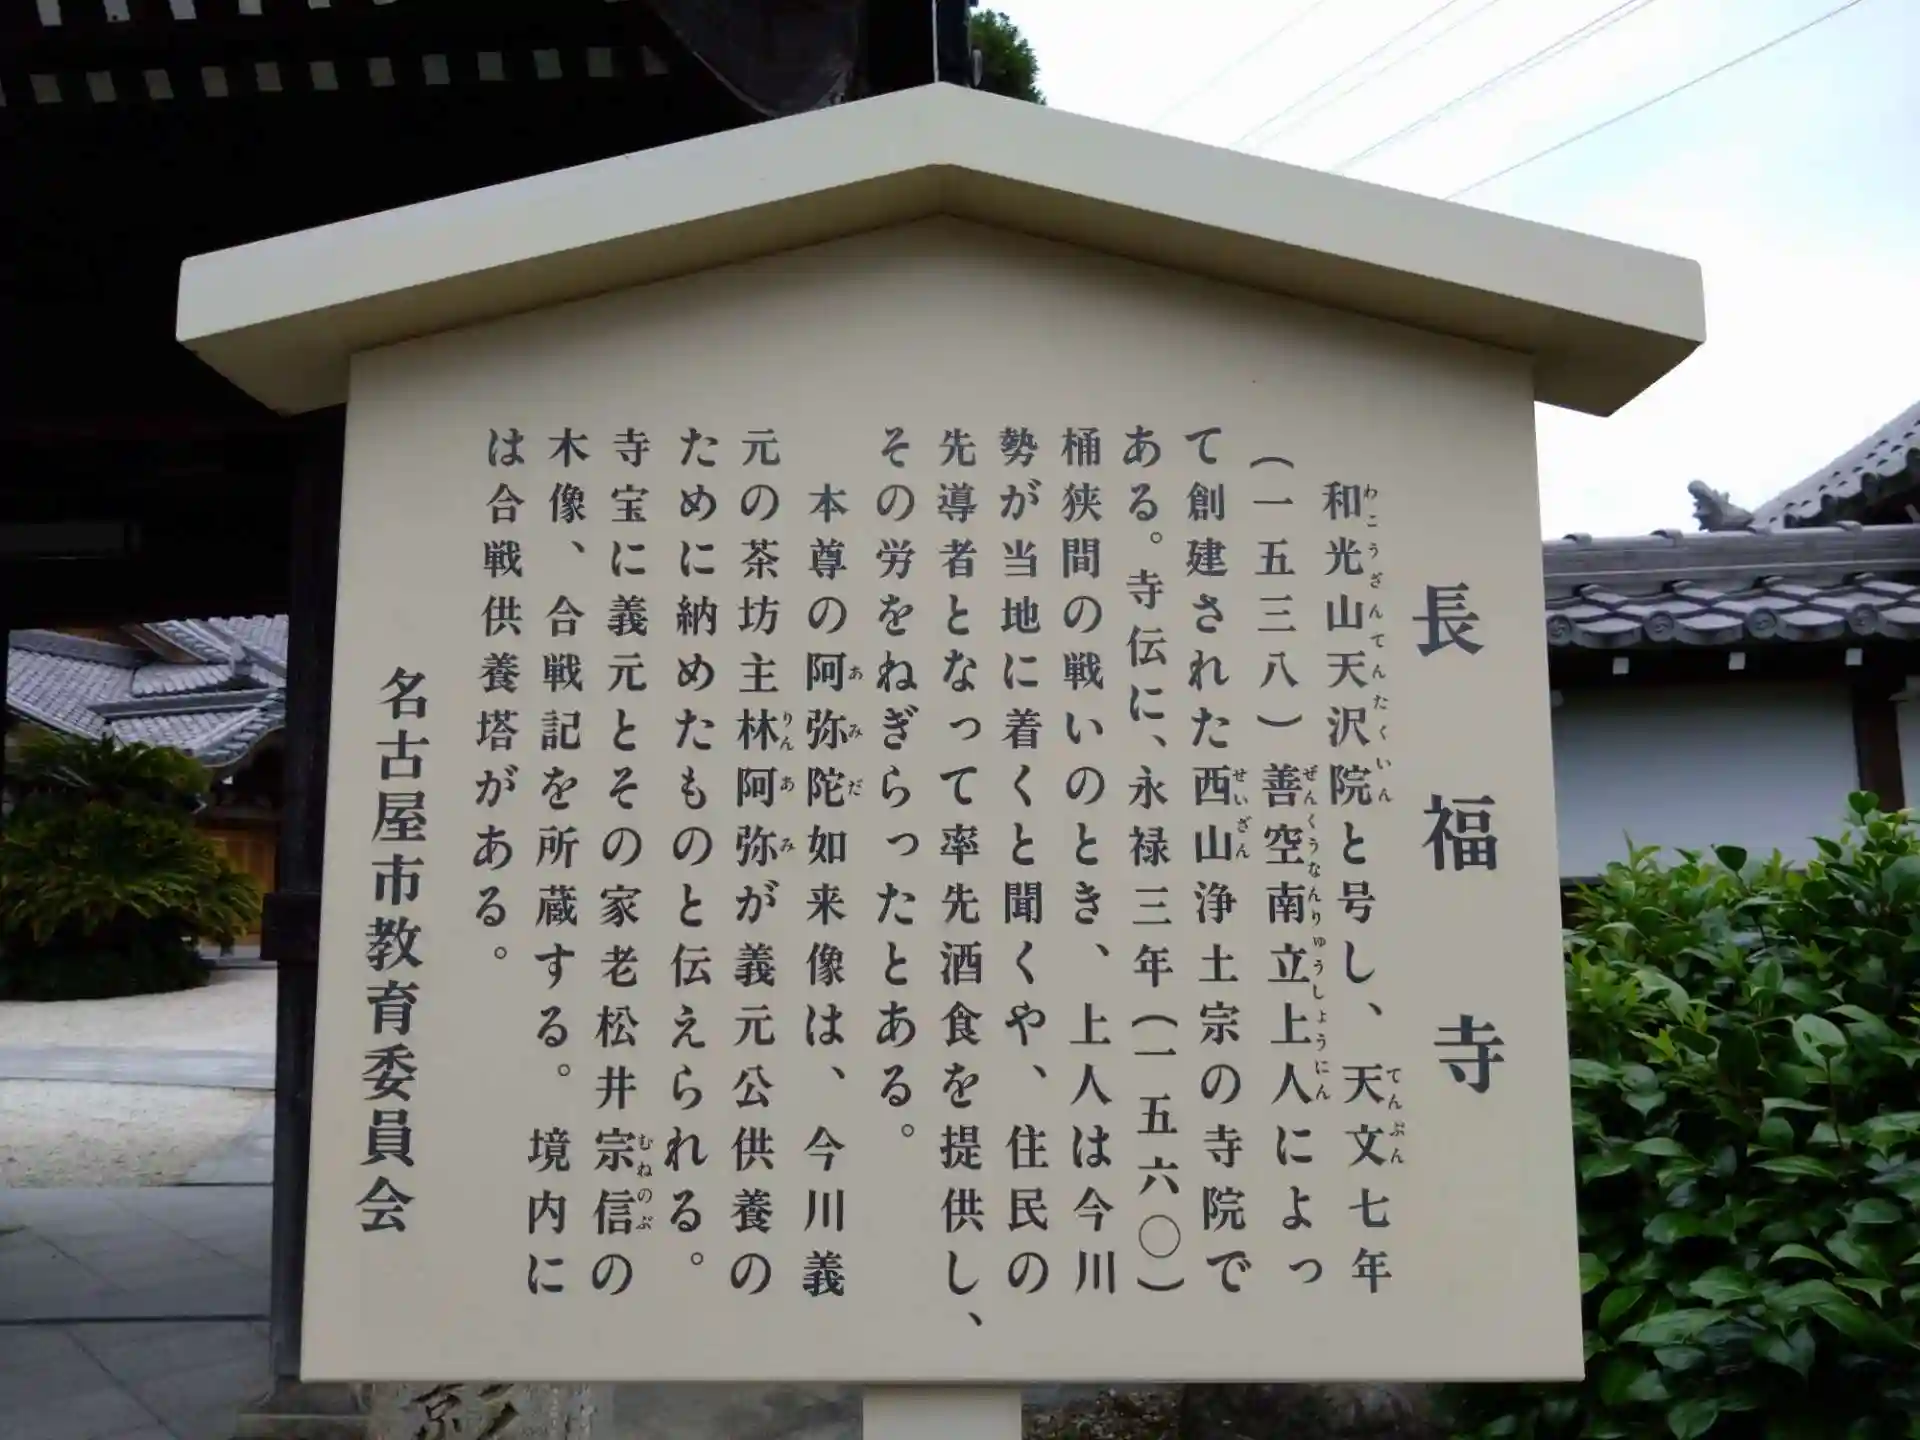 長福寺
和光山天沢院と号し、天文七年
(一五三八)善空南立上人によっ
て創建された西山浄土宗の寺院で
ある。寺伝に、永禄三年(一五六〇)
桶狭間の戦いのとき、上人は今川
勢が当地に着くと聞くや、住民の
先導者となって率先酒食を提供し、
その労をねぎらったとある。
本尊の阿弥陀如来像は、今川義
元の茶坊主林阿弥が義元公供養の
ために納めたものと伝えられる。
寺宝に義元とその家老松井宗信の
木像、合戦記を所蔵する。境内に
は合戦供養塔がある。
名古屋市教育委員会